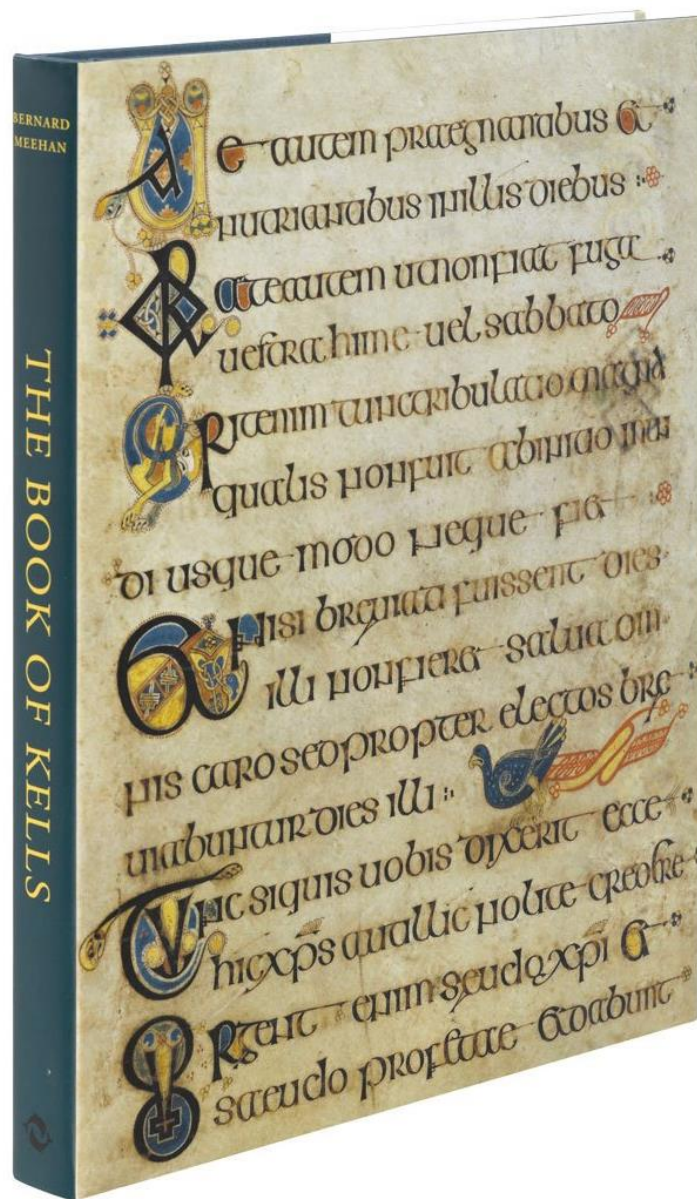 BERNARD
MEEHAN
THE BOOK OF KELLS
Uae autem praegnantibus et
nutrientibus in illis diebus :
Orate autem ut non fiat fuga
uestra hime uel sabbato
Erit enim tunc tribulatio magna
qualis non fuit ab initio mun
di usque modo neque fiet
Et nisi breuiati fuissent dies
illi non fieret salua om
nis caro sed propter electos bre
uiabuntur dies illi :
Tunc siquis uobis dixerit ecce
hic xps aut illic nolite credere
Surgent enim seudo xpi et
saeudo profetae et dabunt